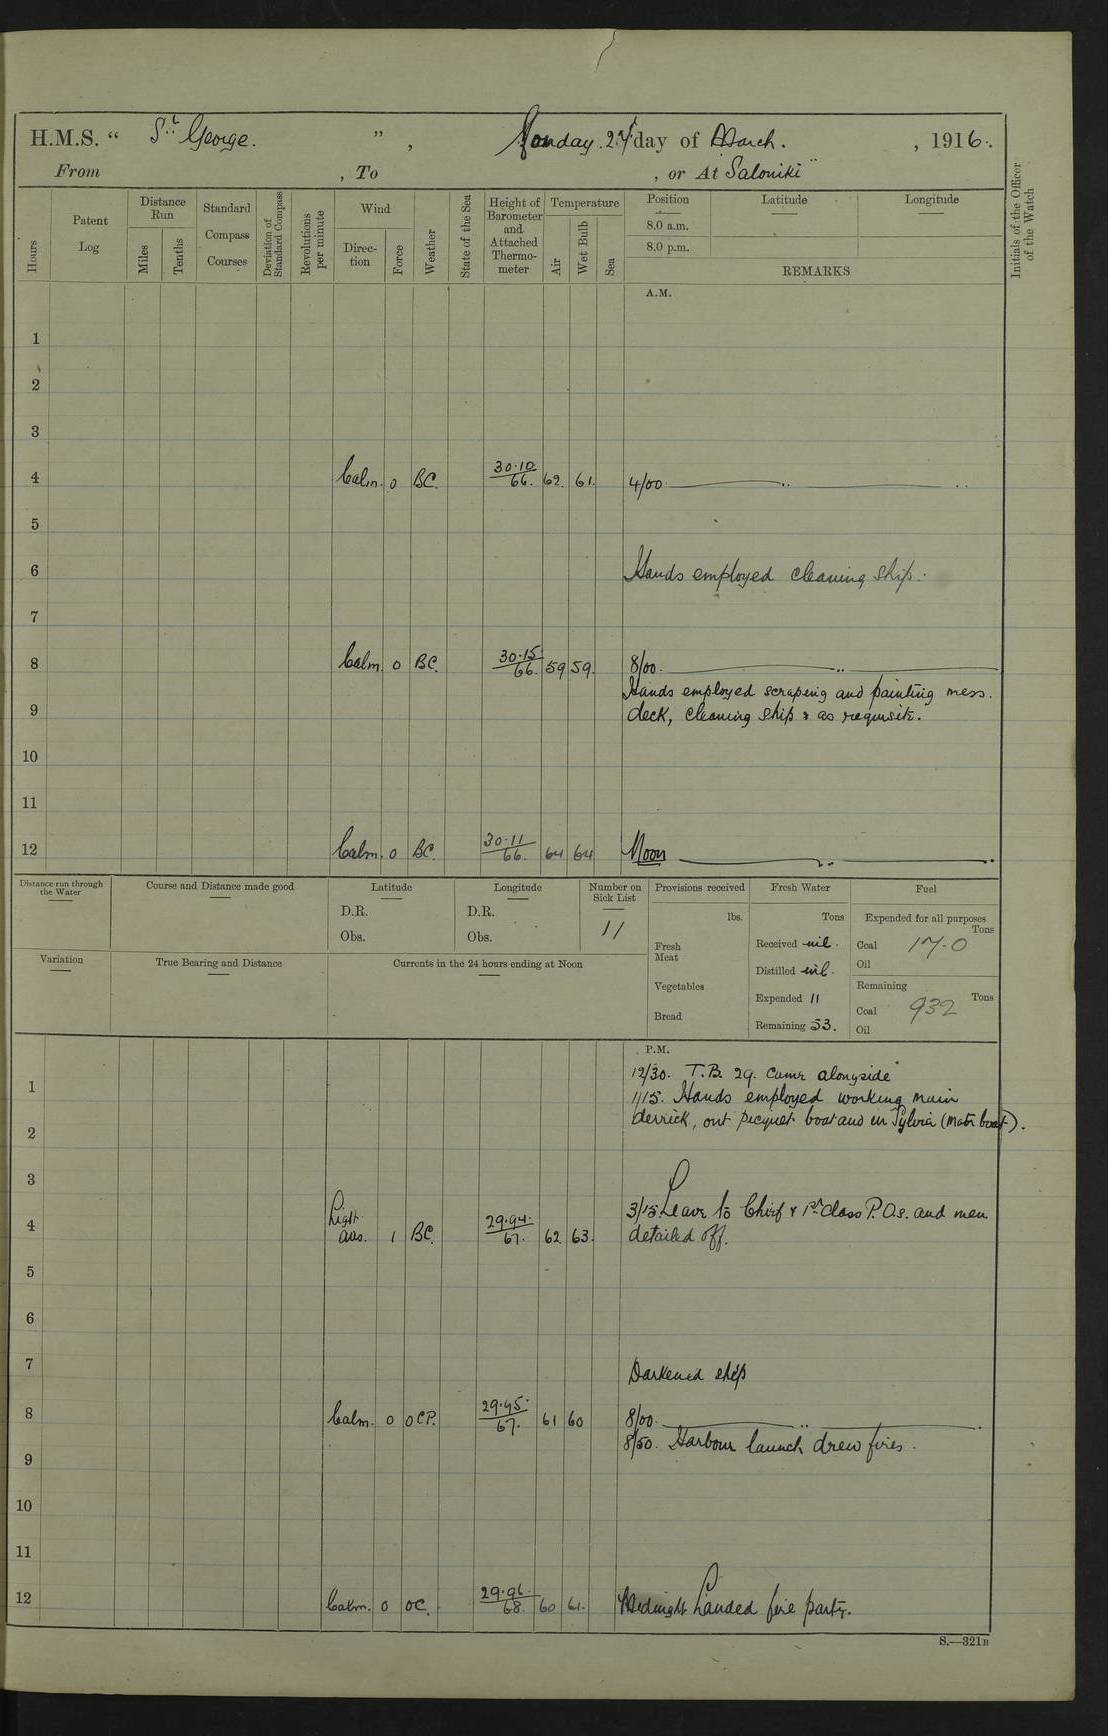 H.M.S. “ St George. ” , Monday 27th day of March. , 1916.
From , To , or At Saloniki
Hours
Patent Log
Distance Run
Miles
Tenths
Standard Compass Courses
Deviation of Standard Compass
Revolutions per minute
Wind
Direction
Force
Weather
State of the Sea
Height of Barometer and Attached Thermometer
Temperature
Air
Wet Bulb
Sea
Position Latitude Longitude
8.0 a.m.
8.0 p.m.
REMARKS
Initials of the Officer of the Watch
A.M.
1
2
3
4 Calm. 0 BC. 30·10/66. 62. 61. 4/00
5
6 Hands employed cleaning ship.
7
8 Calm. 0 BC. 30·15/66. 59 59. 8/00
Hands employed scraping and painting mess.
9 deck, cleaning ship & as requisite.
10
11
12 Calm. 0 BC. 30·11/66. 64 64 Noon
Distance run through the Water
Course and Distance made good
Latitude
D.R.
Obs.
Longitude
D.R.
Obs.
Number on Sick List
11
Provisions received
lbs.
Fresh Meat
Vegetables
Bread
Fresh Water
Tons
Received nil.
Distilled nil.
Expended 11
Remaining 53.
Fuel
Expended for all purposes
Tons
Coal 17·0
Oil
Remaining
Tons
Coal 932
Oil
Variation
True Bearing and Distance
Currents in the 24 hours ending at Noon
P.M.
12/30. T.B. 29. came alongside
1 1/15. Hands employed working main
2 derrick, out picquet boat and in Sylvia (Motr boat).
3
3/15 Leave to Chief & 1st Class P.Os. and men
4 Light airs. 1 BC. 29·94·/67. 62 63. detailed off.
5
6
7 Darkened ship
8 Calm. 0 OCP. 29·95·/67. 61 60 8/00
8/50. Harbour launch drew fires.
9
10
11
12 Calm. 0 OC. 29·96·/68. 60 61. Midnight Landed fire party.
S.—321B